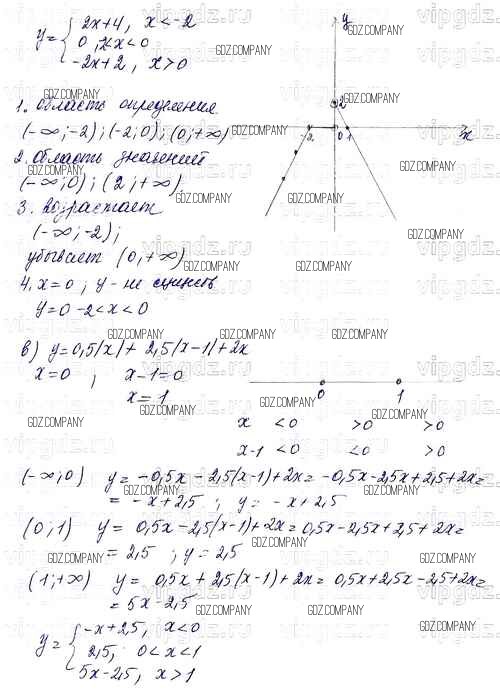 y= { 2x+4, x<-2
0, x<x<0
-2x+2, x>0
y
2
-2 0 1 x
1. Область определения
(-∞;-2); (-2;0); (0;+∞)
2. Область значений
(-∞;0); (2;+∞)
3. возрастает
(-∞;-2);
убывает (0;+∞)
4. x=0; y - не существ
y=0 -2<x<0
в) y=0,5|x|+2,5|x-1|+2x
x=0 ; x-1=0
x=1
0 1
x <0 >0 >0
x-1 <0 <0 >0
(-∞;0) y= -0,5x-2,5(x-1)+2x= -0,5x-2,5x+2,5+2x=
= -x+2,5 ; y= -x+2,5
(0;1) y= 0,5x-2,5(x-1)+2x=0,5x-2,5x+2,5+2x=
= 2,5 ; y=2,5
(1;+∞) y= 0,5x+2,5(x-1)+2x= 0,5x+2,5x-2,5+2x=
= 5x-2,5
y= { -x+2,5, x<0
2,5, 0<x<1
5x-2,5, x>1
GDZ.COMPANY
vipgdz.ru